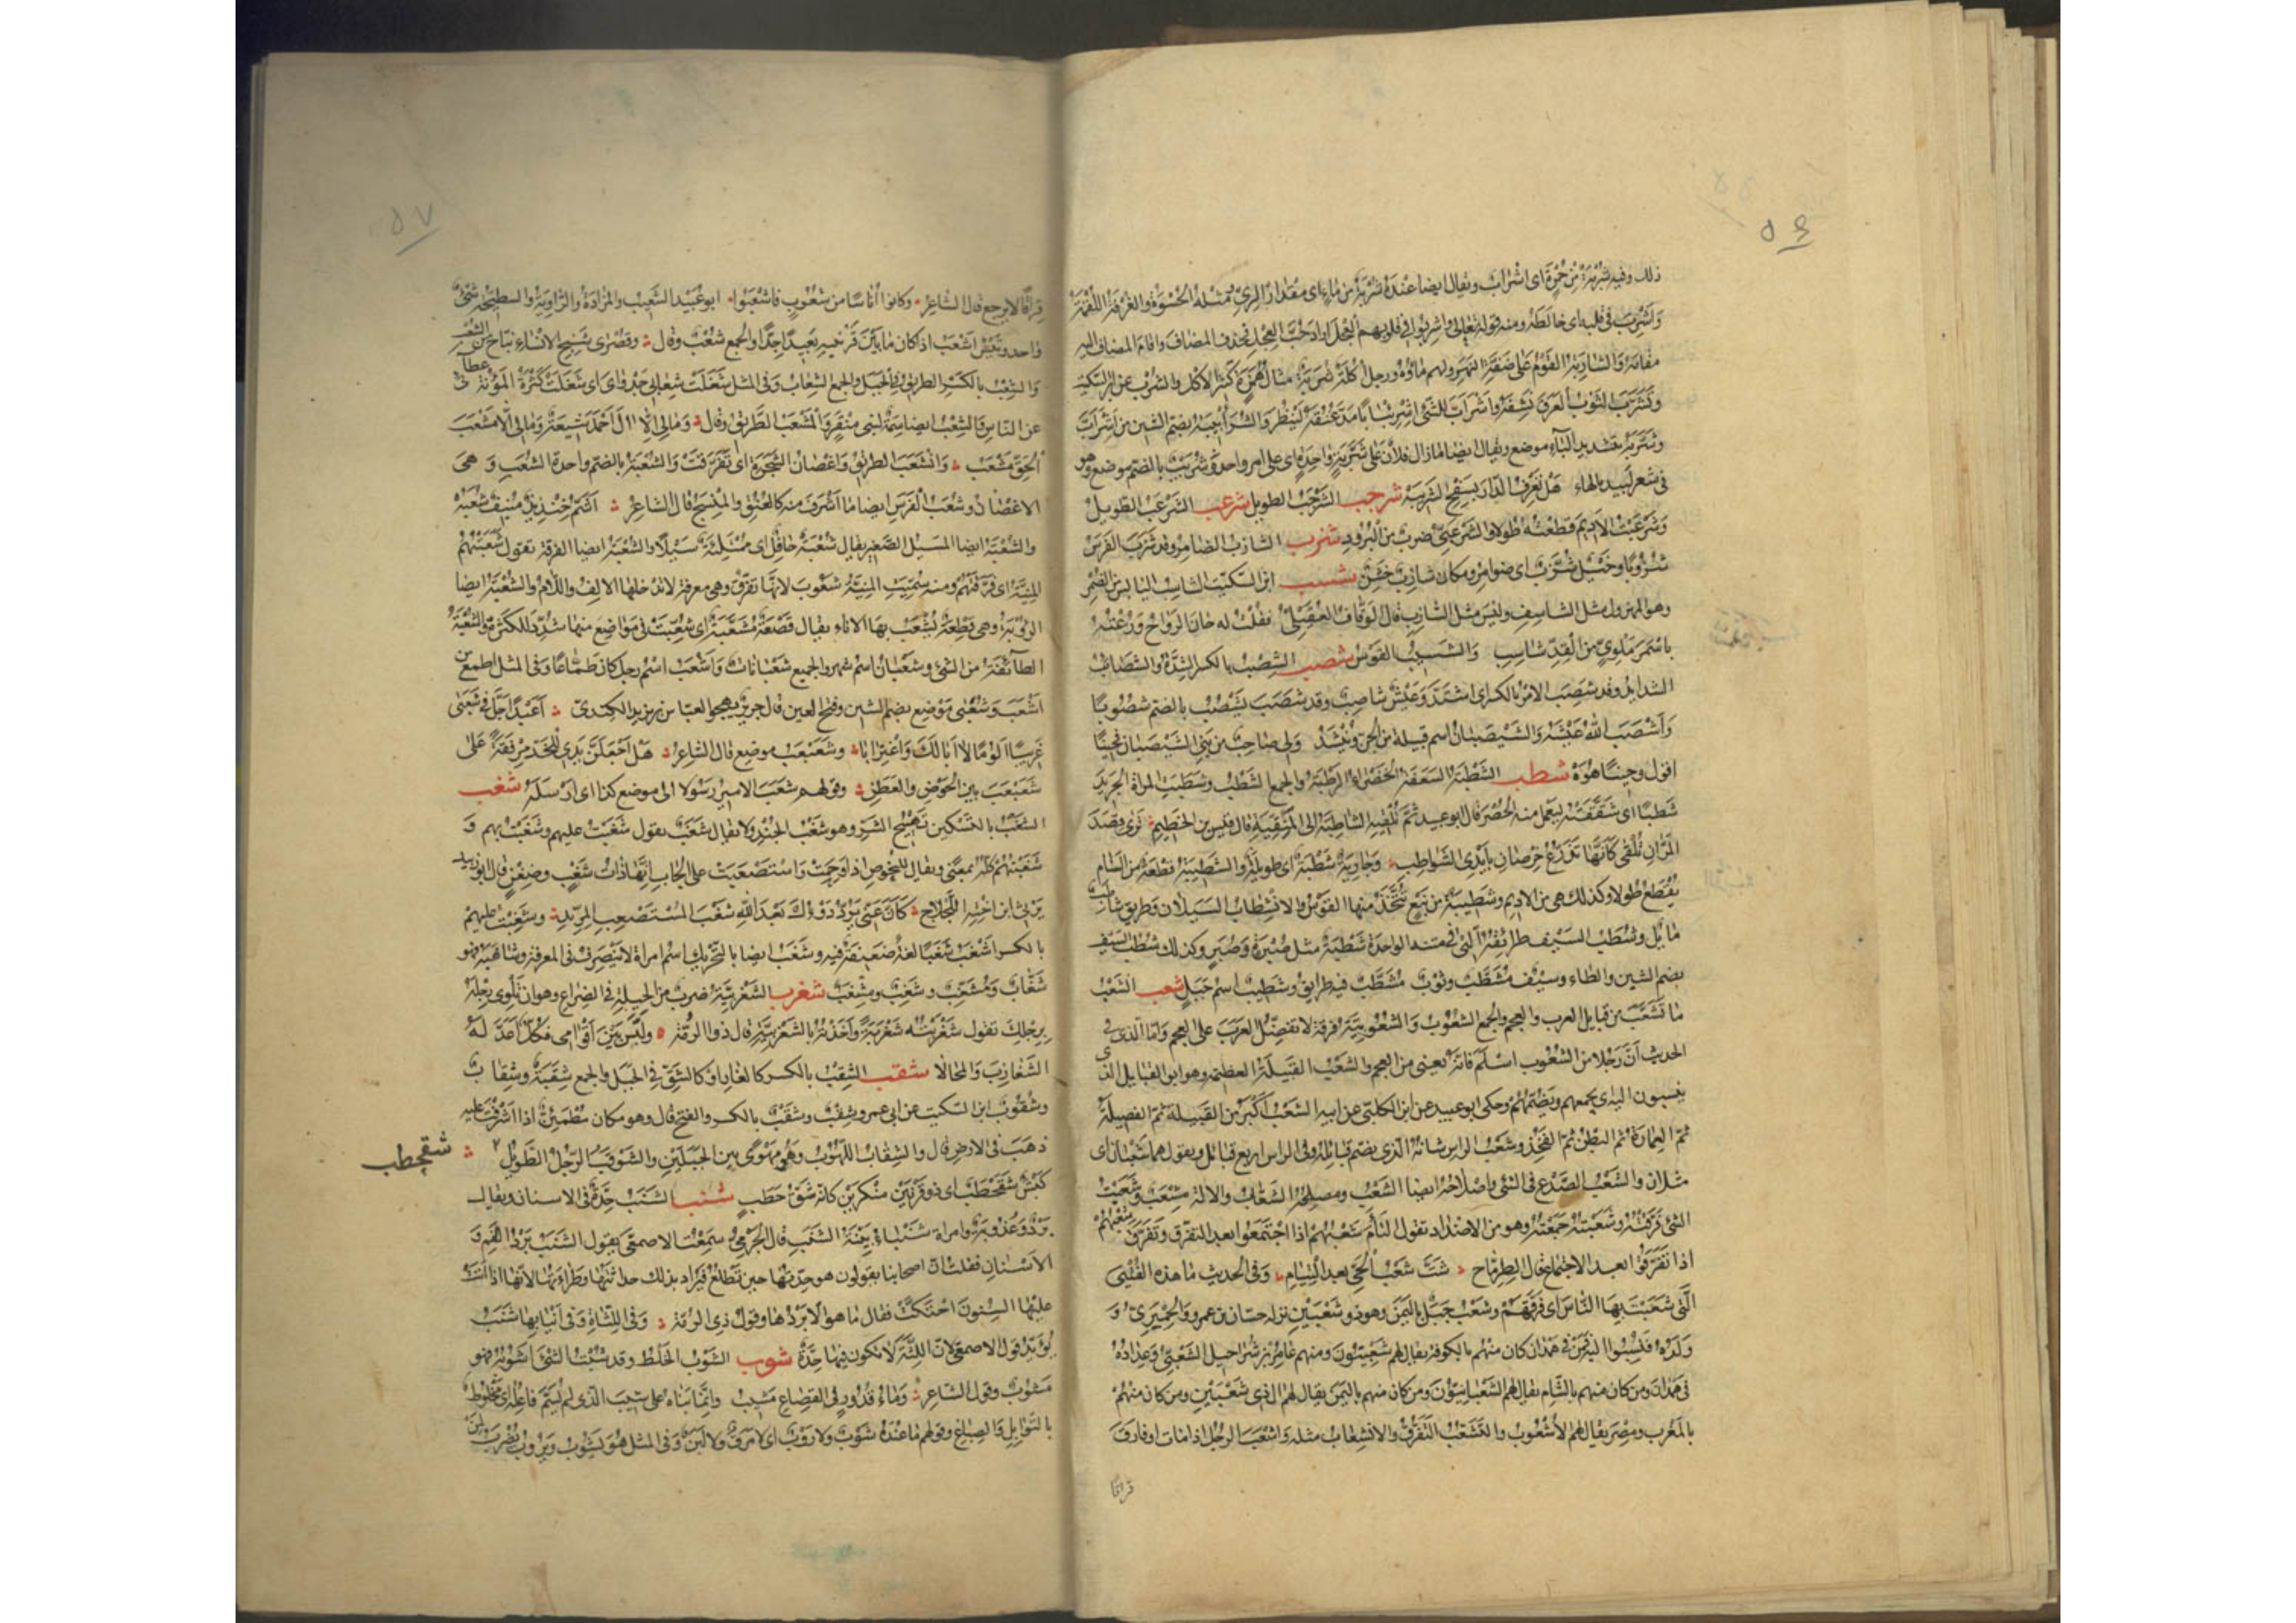 ٥٦
ذلك وفيه شربة من حمرة اى اشراب ويقال ايضا عنده شربة من ماء اى مقدار الرى ومثله الحسوة والغرفة واللقمة
واشرب فى قلبه اى خالطه ومنه قوله تعالى واشربوا فى قلوبهم العجل اراد حب العجل فحذف المضاف واقام المضاف اليه
مقامه والشاربة القوم على ضفة النهر ولهم ماؤه ورجل اكلة شربة مثال همزة كثير الاكل والشرب عن ابن السكيت
وتشرب الثوب العرق نشفه واشراب للشئ اشريبابا مد عنقه لينظر والشرأبيبة بضم الشين من اشراب
وشربة بتشديد الباء موضع ويقال ايضا مازال فلان على شربة واحدة اى على امر واحد وشريب بالضم موضع وهو
فى شعر لبيد بالهاء هل تعرف الدار بسفح الشرببه شرجب الشرجب الطويل شرعب الشرعب الطويل
وشرعبت الاديم قطعته طولا والشرعبى ضرب من البرود شزب الشازب الضامر وقد شزب الفرس
شزوبا وخيل شزب اى ضوامر ومكان شازب خشن شسب ابن السكيت الشاسب اليابس من الضمر
وهو المهزول مثل الشاسف وليس مثل الشازب قال الوقاف العقيلى فقلت له حان الرواح ورعته
باسمر ملوى من القد شاسب والشسيب القوس شصب الشصب بالكسر الشدة والشصائب
الشدايد وقد شصب الامر بالكسر اى اشتد وعيش شاصب وقد شصب يشصب بالضم شصوبا
واشصب الله عيشه والشيصبان اسم قبيلة من الجن وينشد ولى صاحب من بنى الشيصبان فحينا
اقول وحينا هوه شطب الشطبة السعفة الخضراء الرطبة والجمع الشطب وشطبت المراة الجريد
شطبا اى شققته ليعمل منه الحصر قال ابو عبيد ثم تلقيه الشاطبة الى المنقية قال قيس بن الخطيم ترى قصد
المران تلقى كأنها تذرع خرصان بايدى الشواطب وجارية شطبة اى طويلة والشطيبة قطعة من السنام
يقطع طولا وكذلك هى من الاديم وشطيبة من نبع تتخذ منها القوس والانشطاب السيلان وطريق شاطب
مايل وشطب السيف طرائقه التى فى متنه الواحدة شطبة مثل صبرة وصبر وكذلك شطب السيف
بضم الشين والطاء وسيف مشطب وثوب مشطب فيه طرايق وشطيب اسم جبل شعب الشعب
ما تشعب من قبايل العرب والعجم والجمع الشعوب والشعوبية فرقة لا تفضل العرب على العجم واما الذى فى
الحديث ان رجلا من الشعوب اسلم فانه يعنى من العجم والشعب القبيلة العظيمة وهو ابو القبايل الذى
ينسبون اليه اى يجمعهم ويضمهم وحكى ابو عبيد عن ابن الكلبى عن ابيه الشعب اكبر من القبيلة ثم الفصيلة
ثم العمارة ثم البطن ثم الفخذ وشعب الراس شانه الذى يضم قبائله وفى الراس اربع قبائل ويقول هما شعبان اى
مثلان والشعب الصدع فى الشئ واصلاحه ايضا الشعب ومصلحه الشعاب والالة مشعب وشعبت
الشئ فرقته وشعبته جمعته وهو من الاضداد تقول التأم شعبهم اذا اجتمعوا بعد التفرق وتفرق شعبهم
اذا تفرقوا بعد الاجتماع قال الطرماح شت شعب الحى بعد التيام وفى الحديث ما هذه الفتيى
التى شعبت بها الناس اى فرقتهم وشعب جبل باليمن وهو ذو شعبين نزله حسان بن عمرو الحميرى و
ولده فنسبوا اليه فمن فى همدان كان منهم بالكوفة يقال لهم شعبيون ومنهم عامر بن شراحيل الشعبى وعداده
فى همدان ومن كان منهم بالشام يقال لهم الشعبانيون ومن كان منهم باليمن يقال لهم ال ذى شعبين ومن كان منهم
بالمغرب ومصر يقال لهم الاشعوب والتشعب التفرق والانشعاب مثله واشعب الرجل اذا مات او فارق
فراقا
٥٧
فراقا لا يرجع قال الشاعر وكانوا أناسا من شعوب فاشعبوا ابو عبيد الشعيب والمزادة والراوية والسطيحة شئ
واحد وتيس اشعب اذا كان ما بين قرنيه بعيدا جدا والجمع شعب وقال وقصرى شنج الانساء نباح من الشعب
والشعب بالكسر الطريق فى الجبل والجمع الشعاب وفى المثل شغلت شعابى جدواى اى شغلت كثرة المؤنة عطائى
عن الناس والشعب ايضا سمة لبنى منقر والمشعب الطريق وقال ومالى الا ال احمد شيعة ومالى الا مشعب
الحق مشعب وانشعب الطريق واغصان الشجرة اى تفرقت والشعبة بالضم واحدة الشعب وهى
الاغصان وشعب الفرس ايضا ما اشرف منه كالعنق والمنسج قال الشاعر اشم خنذيذ منيف شعبه
والشعبة ايضا المسيل الصغير يقال شعبة حافل اى ممتلئة سيلا والشعبة ايضا الفرقة تقول شعبتهم
المنية اى فرقتهم ومنه سميت المنية شعوب لانها تفرق وهى معرفة لا تدخلها الالف واللام والشعبة ايضا
الرؤبة وهى قطعة يشعب بها الاناء يقال قصعة مشعبة اى شعبت فى مواضع منها شدد للكثرة والشعبة
الطآئفة من الشئ وشعبان اسم شهر والجميع شعبانات واشعب اسم رجل كان طماعا وفى المثل اطمع من
اشعب وشعبى موضع بضم الشين وفتح العين قال جرير يهجوا لعباس بن يزيد الكندى أعبدا حل فى شعبى
غريبا ألؤما لا أبا لك واغترابا وشعبعب موضع قال الشاعر هل اجعلن يدى للخد مرفقة على
شعبعب بين الحوض والعطن وقولهم شعب الامير رسولا الى موضع كذا اى ارسله شغب
الشغب بالتسكين تهييج الشر وهو شغب الجند ولا يقال شغب تقول شغبت عليهم وشغبت بهم و
شغبتهم كله بمعنى ويقال للنحوص اذا وحمت واستصعبت على الجاب انها ذات شغب وضغن قال ابو زبيد
يرثى ابن اخته اللجلاج كان عنى يرد درؤك بعد الله شغب المستصعب المريد وشغبت عليهم
بالكسر اشغب شغبا لغة ضعيفة فيه وشغب ايضا بالتحريك اسم امراة لا ينصرف فى المعرفة وشاغبه فهو
شغاب ومشغب وشغب ومشغب شغرب الشغربية ضرب من الحيلة فى الصراع وهو ان تلوى رجله
برجلك تقول شغربته شغربة واخذته بالشغربية قال ذو الرمة ولبس بين أقوامى فكل أعد له
الشغازب والمحالا شقب الشقب بالكسر كالغار او كالشق فى الجبل والجمع شقبة وشقاب
وشقوب ابن السكيت عن ابى عمرو شقب وشقب بالكسر والفتح قال وهو مكان مطمئن اذا اشرفت عليه
ذهب فى الارض قال والشقاب اللهوب وهو مهوى بين الجبلين والشوقب الرجل الطويل
شقحطب
كبش شقحطب اى ذو قرنين منكرين كانه شق حطب شنب الشنب حدة فى الاسنان ويقال
برد وعذوبة وامراة شنباء بينة الشنب قال الجرمى سمعت الاصمعى يقول الشنب برد الفم و
الاسنان فقلت ان اصحابنا يقولون هو حدتها حين تطلع فيراد بذلك حداثتها وطراءتها لانها اذا اتت
عليها السنون احتكت فقال ما هو الا بردها وقول ذى الرمة وفى اللثات وفى أنيابها شنب
يؤيد قول الاصمعى لان اللثة لا تكون فيها حدة شوب الشوب الخلط وقد شبت الشئ اشوبه فهو
مشوب وقول الشاعر وماء قدور فى القصاع مشيب وانما بناه على شيب الذى لم يسم فاعله اى مخلوط
بالتوابل والصباغ وقولهم ما عنده شوب ولا روب اى لا مرق ولا لبن وفى المثل هو يشوب ويروب يضرب لمن